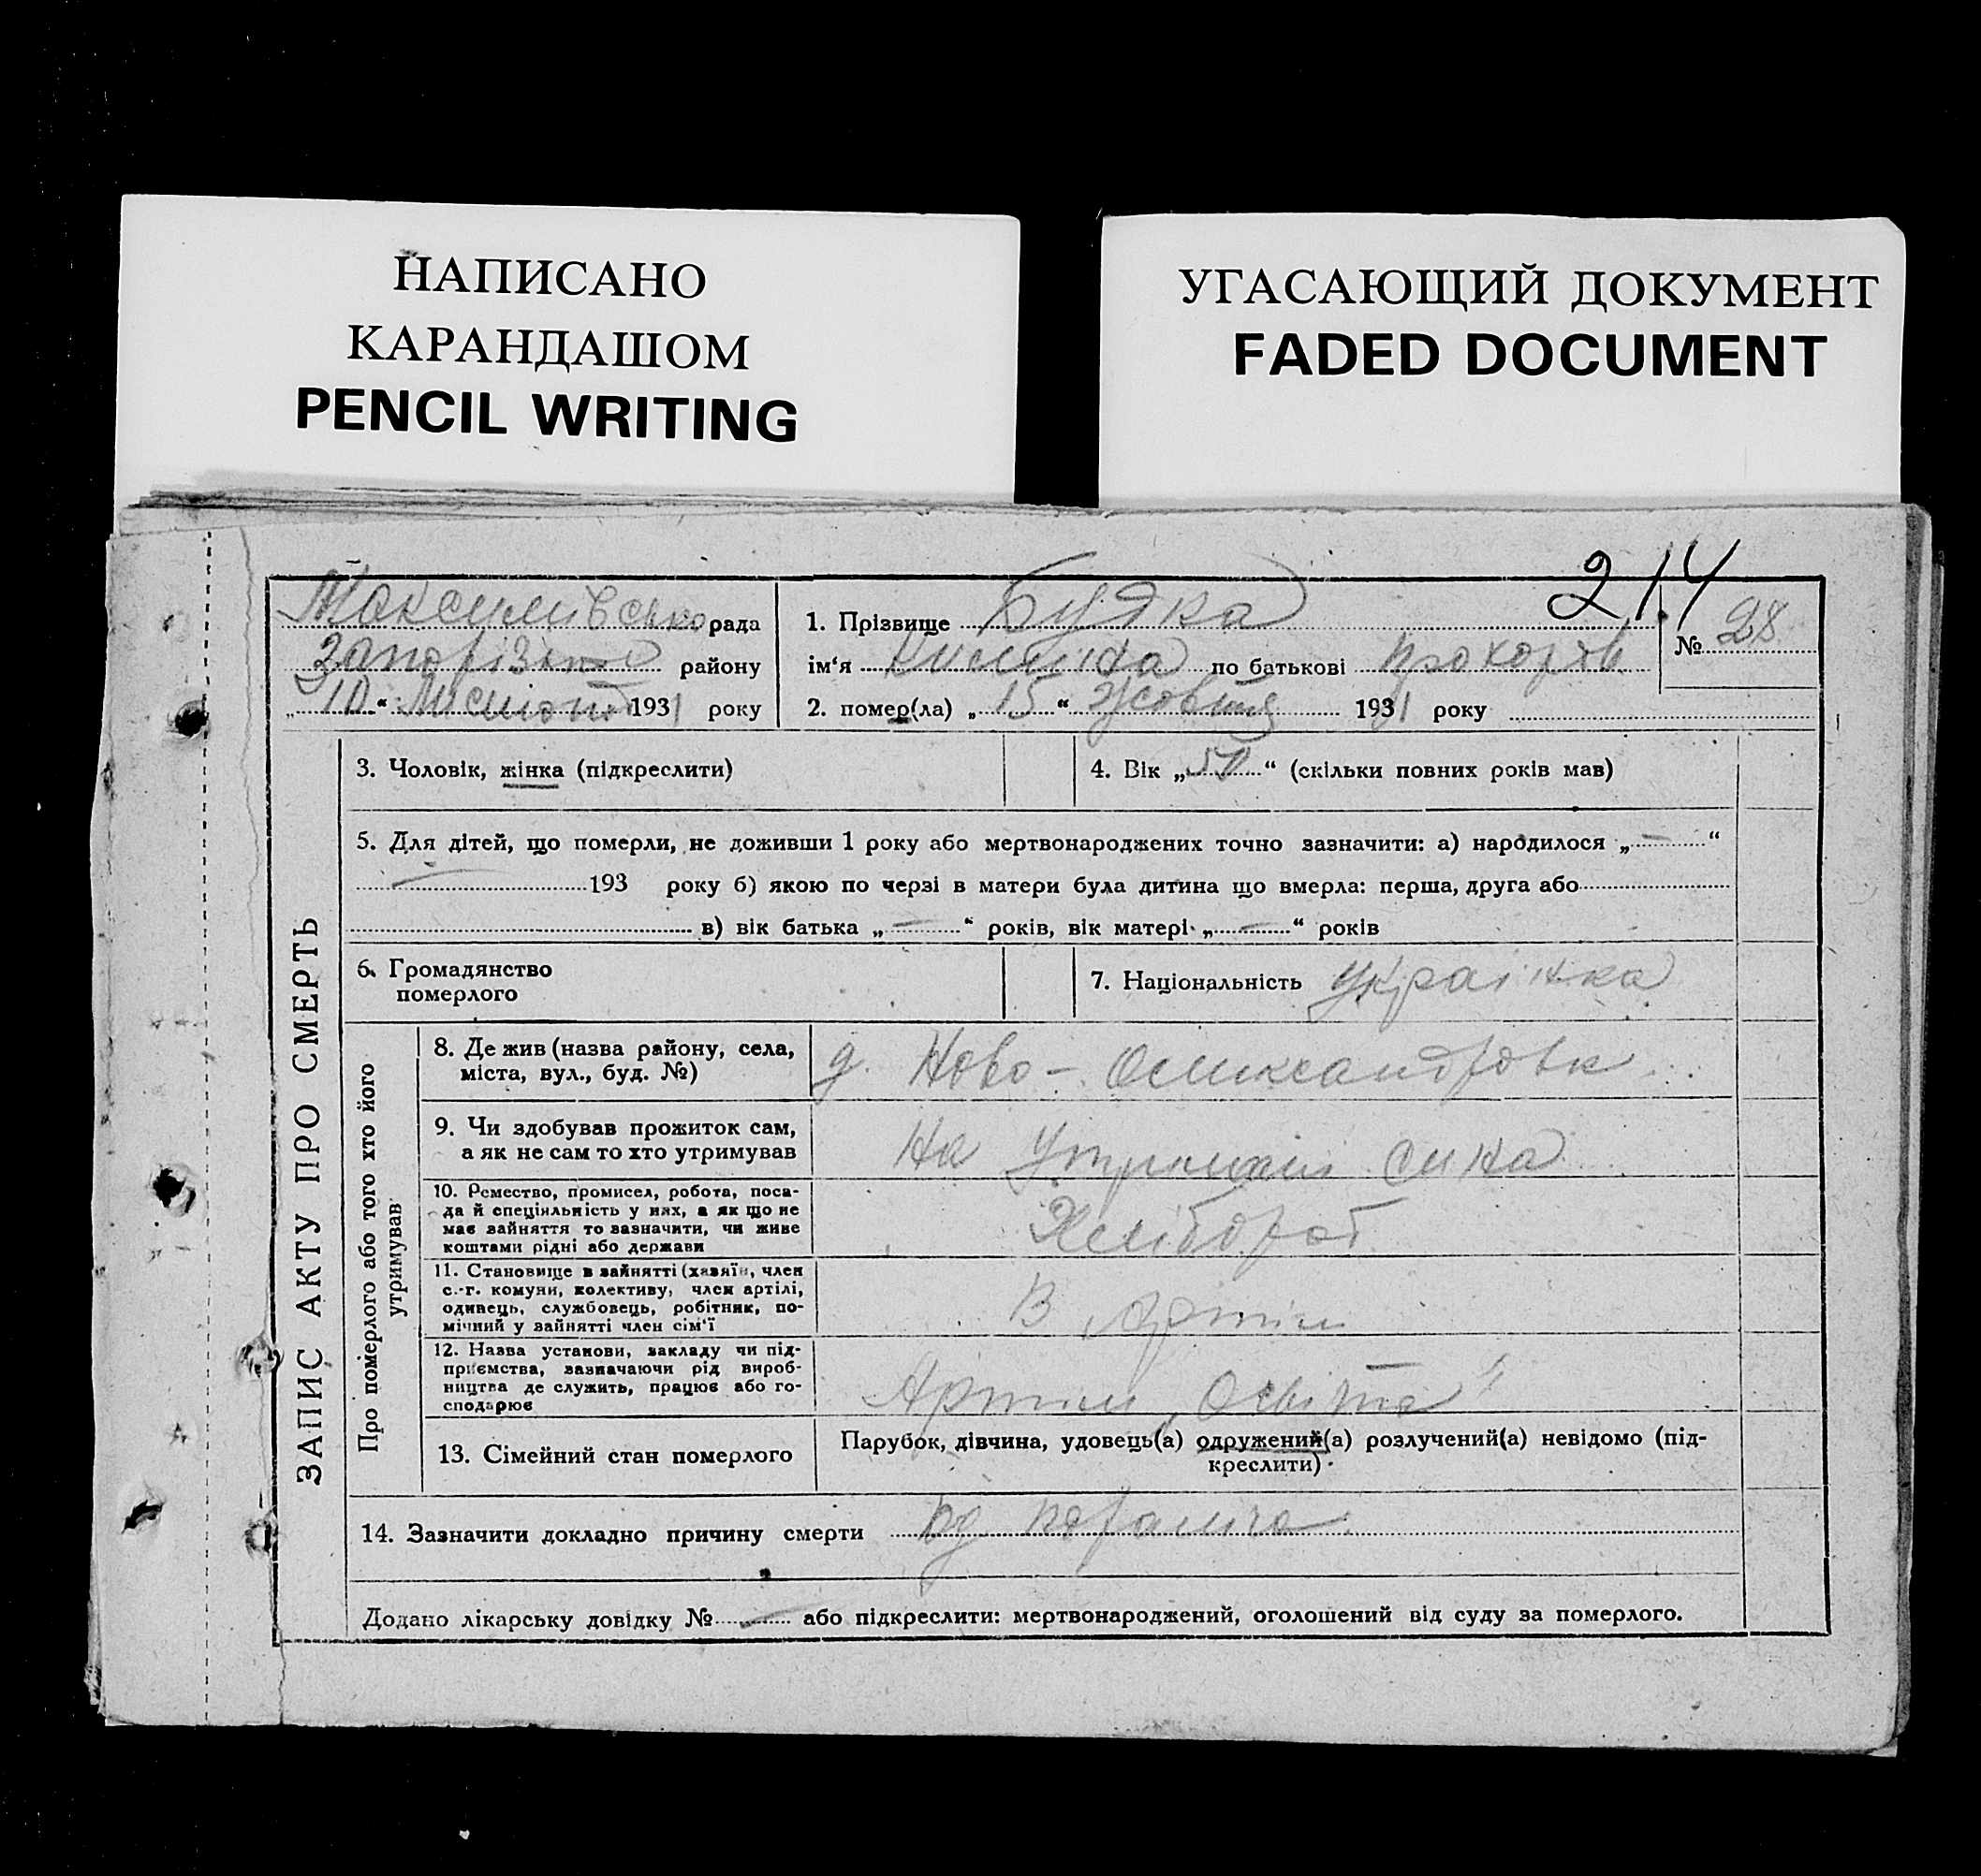 НАПИСАНО
КАРАНДАШОМ
PENCIL WRITING
УГАСАЮЩИЙ ДОКУМЕНТ
FADED DOCUMENT
214
рада
району
„10“ 1931 року
1. Прізвище
№ 28
ім‘я по батькові
2. помер(ла) „15“ Жовтня 1931 року
ЗАПИС АКТУ ПРО СМЕРТЬ
3. Чоловік, жінка (підкреслити)
4. Вік „ “ (скільки повних років мав)
5. Для дітей, що померли, не доживши 1 року або мертвонароджених точно зазначити: а) народилося „—“
— 193 року б) якою по черзі в матери була дитина що вмерла: перша, друга або
в) вік батька „—“ років, вік матері „—“ років
6. Громадянство
померлого
7. Національність Українка
Про померлого або того хто його
утримував
8. Де жив (назва району, села,
міста, вул., буд. №)
Ново-
9. Чи здобував прожиток сам,
а як не сам то хто утримував
На сина
10. Ремество, промисел, робота, поса-
да й спеціяльність у них, а як що не
має зайняття то зазначити, чи живе
коштами рідні або держави
Хлібороб
11. Становище в зайнятті (хазяїн, член
с.-г. комуни, колективу, член артілі,
одинець, службовець, робітник, по-
мічний у зайнятті член сім‘ї
В Артілі
12. Назва установи, закладу чи під-
приємства, зазначаючи рід вироб-
ництва де служить, працює або го-
сподарює
Артіль „Освіта“
13. Сімейний стан померлого
Парубок, дівчина, удовець(а) одружений(а) розлучений(а) невідомо (під-
креслити)
14. Зазначити докладно причину смерти
Додано лікарську довідку № — або підкреслити: мертвонароджений, оголошений від суду за померлого.